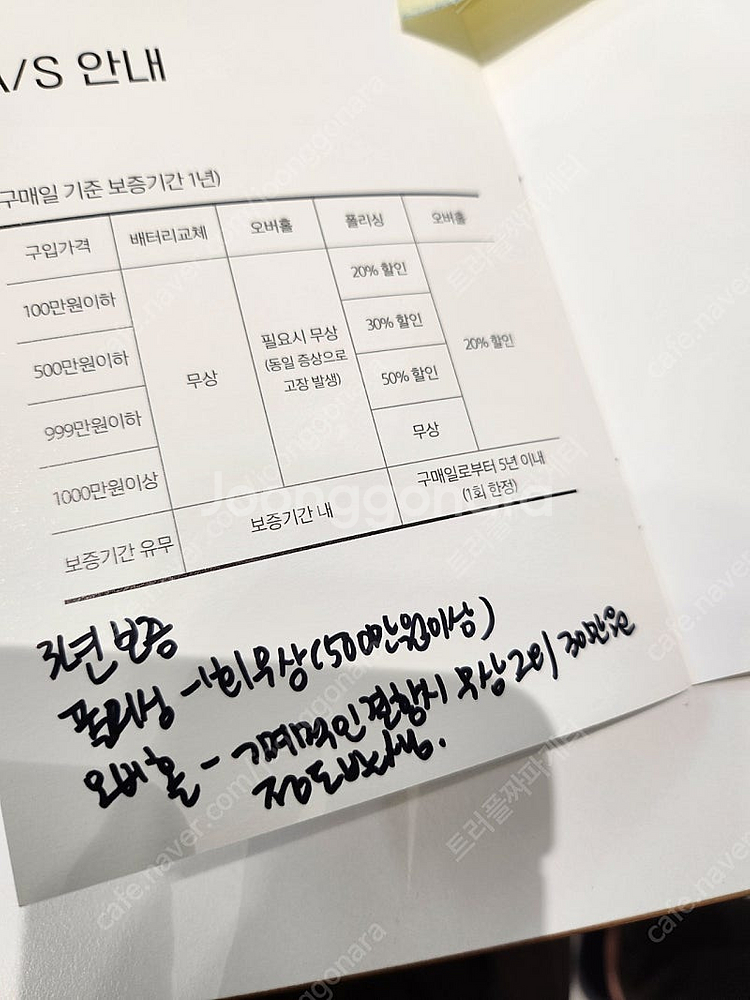 A/S 안내
구매일 기준 보증기간 1년)
구입가격 배터리교체 오버홀 폴리싱 오버홀
100만원이하 20% 할인
500만원이하 무상 필요시 무상 30% 할인 20% 할인
(동일 증상으로
고장 발생)
999만원이하 50% 할인
1000만원이상 무상
보증기간 유무 보증기간 내 구매일로부터 5년 이내
(1회 한정)
3년 보증
폴리싱 - 1회 무상 (500만원이상)
오버홀 - 기계적인 결함시 무상 그외 30만원
정도 발생.
Joonggonara
cafe.naver.com/joonggonara
트러플짜파게티